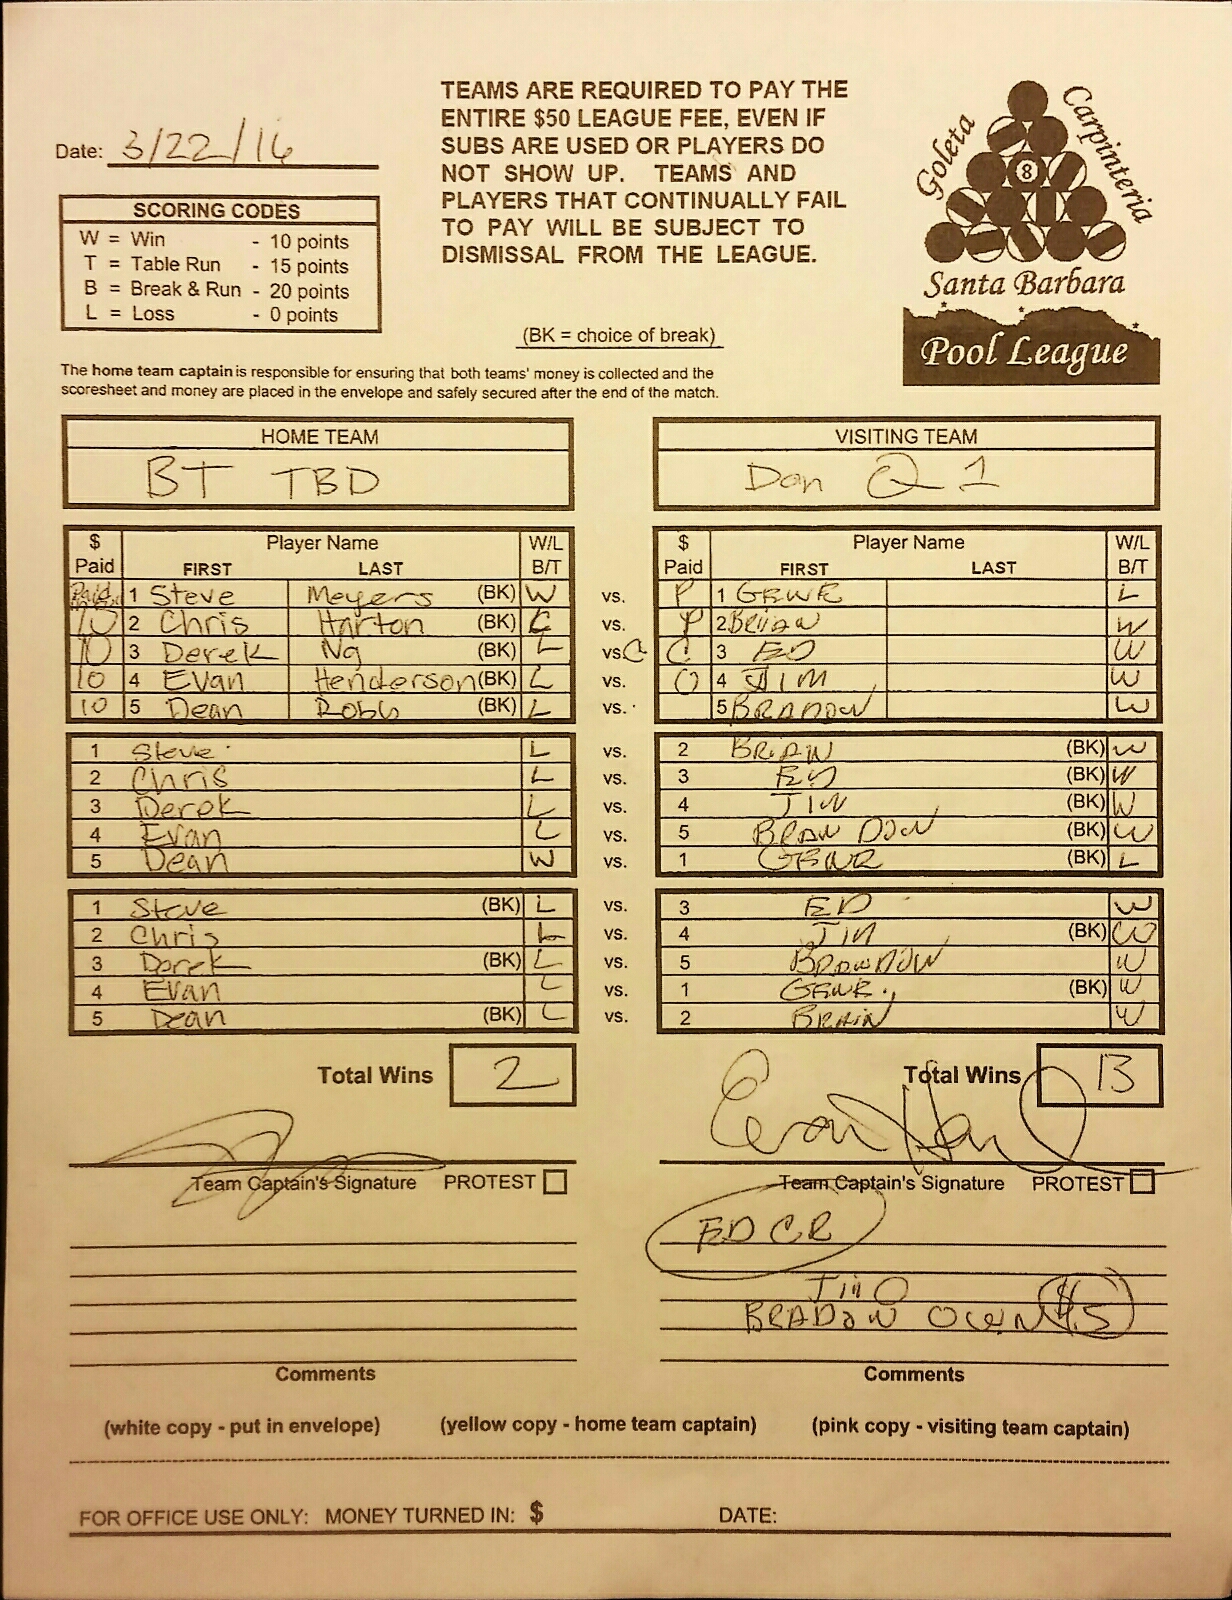 Date: 3/22/16
TEAMS ARE REQUIRED TO PAY THE
ENTIRE $50 LEAGUE FEE, EVEN IF
SUBS ARE USED OR PLAYERS DO
NOT SHOW UP. TEAMS AND
PLAYERS THAT CONTINUALLY FAIL
TO PAY WILL BE SUBJECT TO
DISMISSAL FROM THE LEAGUE.
Goleta
Carpinteria
8
Santa Barbara
Pool League
SCORING CODES
W = Win - 10 points
T = Table Run - 15 points
B = Break & Run - 20 points
L = Loss - 0 points
(BK = choice of break)
The home team captain is responsible for ensuring that both teams' money is collected and the
scoresheet and money are placed in the envelope and safely secured after the end of the match.
HOME TEAM VISITING TEAM
BT TBD Don Q 1
$ Player Name W/L $ Player Name W/L
Paid FIRST LAST B/T Paid FIRST LAST B/T
Paid 1 Steve Meyers (BK) W vs. P 1 L
10 2 Chris Horton (BK) vs. P 2 BRIAN W
10 3 Derek Ng (BK) L vs. C 3 ED W
10 4 Evan Henderson (BK) L vs. O 4 JIM W
10 5 Dean Robb (BK) L vs. 5 BRANDON W
1 Steve L vs. 2 BRIAN (BK) W
2 Chris L vs. 3 ED (BK) W
3 Derek L vs. 4 JIM (BK) W
4 Evan L vs. 5 BRAN DON (BK) W
5 Dean W vs. 1 (BK) L
1 Steve (BK) L vs. 3 ED W
2 Chris L vs. 4 JIM (BK) W
3 Derek (BK) L vs. 5 BRANDON W
4 Evan L vs. 1 (BK) W
5 Dean (BK) L vs. 2 BRAIN W
Total Wins 2 Total Wins 13
Team Captain's Signature PROTEST Team Captain's Signature PROTEST
ED CR
JIM O
BRADON OWN $5
Comments Comments
(white copy - put in envelope) (yellow copy - home team captain) (pink copy - visiting team captain)
FOR OFFICE USE ONLY: MONEY TURNED IN: $ DATE: